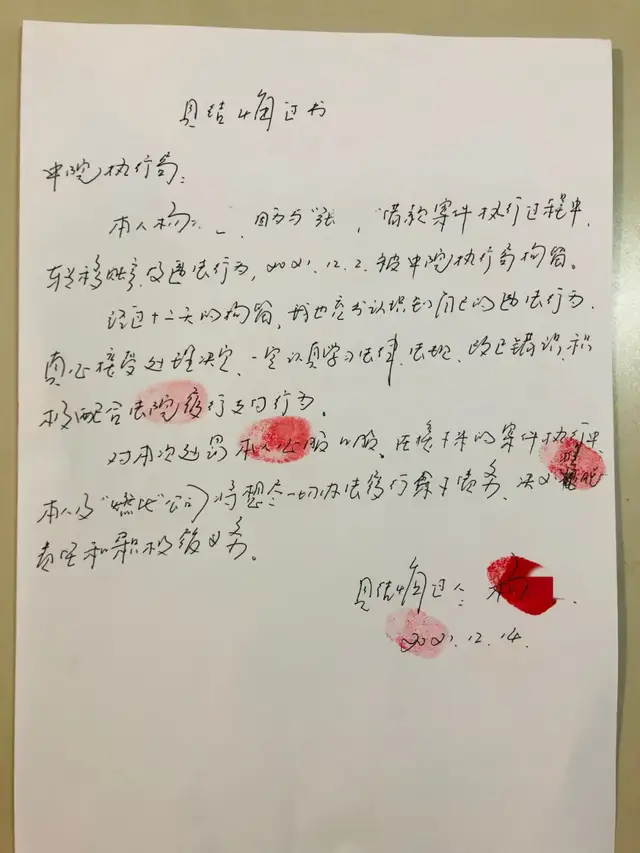 具结悔过书
中院执行局：
本人杨 ，因为与"张 "借款案件执行过程中，
转移账房及违法行为，2021.12.2.被中院执行局拘留。
经过十二天的拘留，我也充分认识到自己的违法行为，
真心接受处理决定，一定认真学习法律、法规，改正错误，积
极配合法院履行支付行为。
对本次处罚本人心服口服，在接下来的案件执行中，
本人及" "公司将想尽一切办法履行余下债务，决不
责任和积极履行义务。
具结悔过人：杨
2021.12.14.